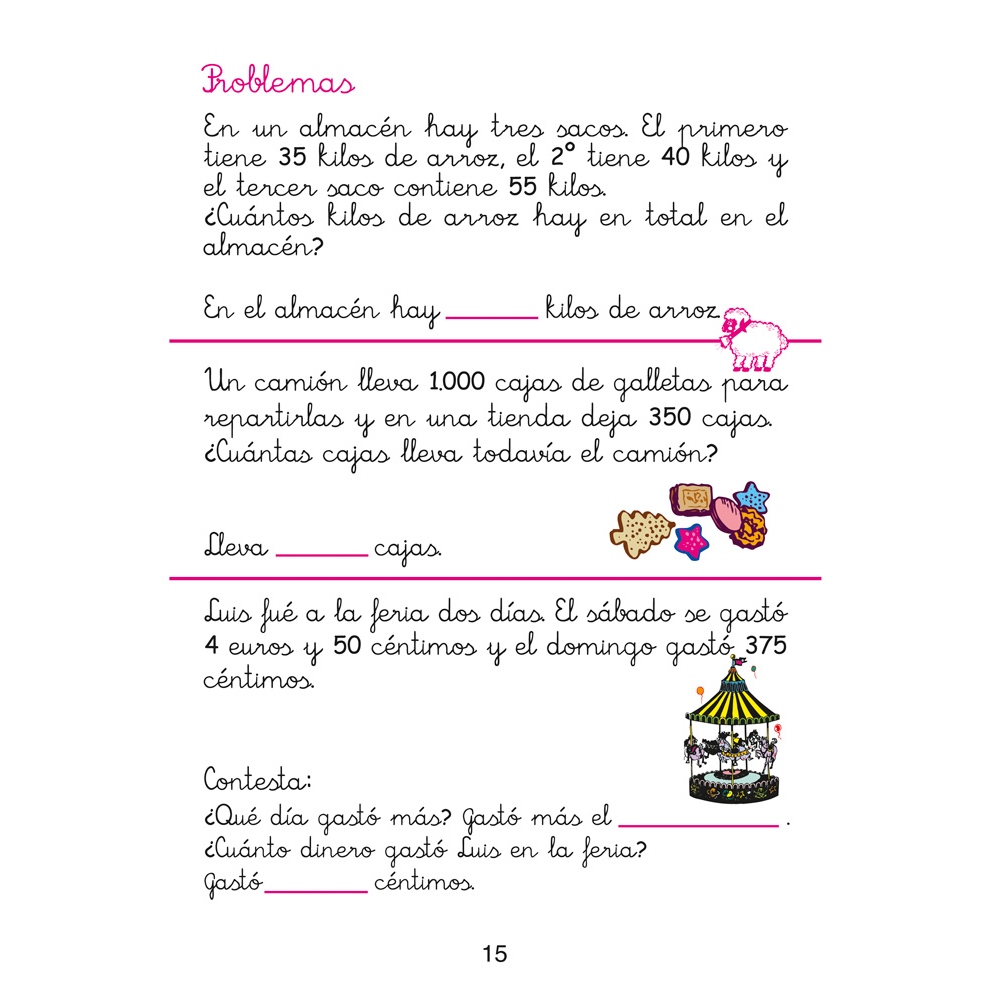 Problemas
En un almacén hay tres sacos. El primero
tiene 35 kilos de arroz, el 2º tiene 40 kilos y
el tercer saco contiene 55 kilos.
¿Cuántos kilos de arroz hay en total en el
almacén?
En el almacén hay ______ kilos de arroz
Un camión lleva 1.000 cajas de galletas para
repartirlas y en una tienda deja 350 cajas.
¿Cuántas cajas lleva todavía el camión?
Lleva ______ cajas.
Luis fué a la feria dos días. El sábado se gastó
4 euros y 50 céntimos y el domingo gastó 375
céntimos.
Contesta:
¿Qué día gastó más? Gastó más el ______ .
¿Cuánto dinero gastó Luis en la feria?
Gastó ______ céntimos.
15